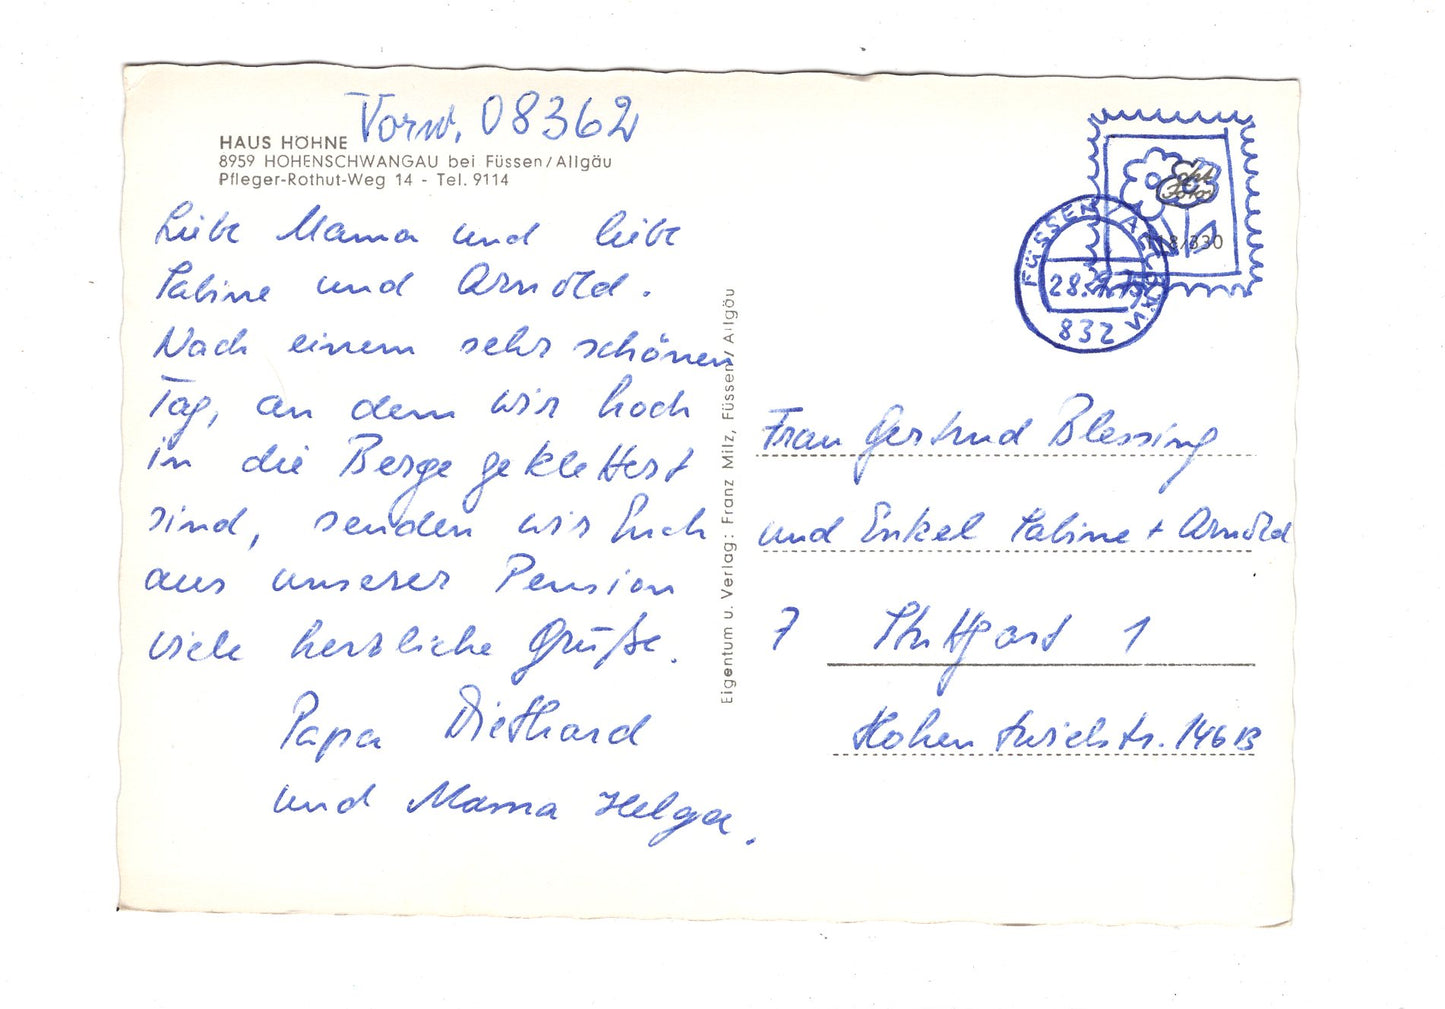 Vorw. 08362
HAUS HÖHNE
8959 HOHENSCHWANGAU bei Füssen/Allgäu
Pfleger-Rothut-Weg 14 - Tel. 9114
Liebe Mama und liebe
Sabine und Arnold.
Nach einem sehr schönen
Tag, an dem wir hoch
in die Berge geklettert
sind, senden wir Euch
aus unserer Pension
viele herzliche Grüße.
Papa Diethard
und Mama Helga.
Eigentum u. Verlag: Franz Milz, Füssen/Allgöu
Echt
Foto
118/330
FÜSSEN/ALLGÄU
28.
832
Frau Gertrud Blessing
und Enkel Sabine + Arnold
7 Stuttgart 1
Hohentwielstr. 146 B